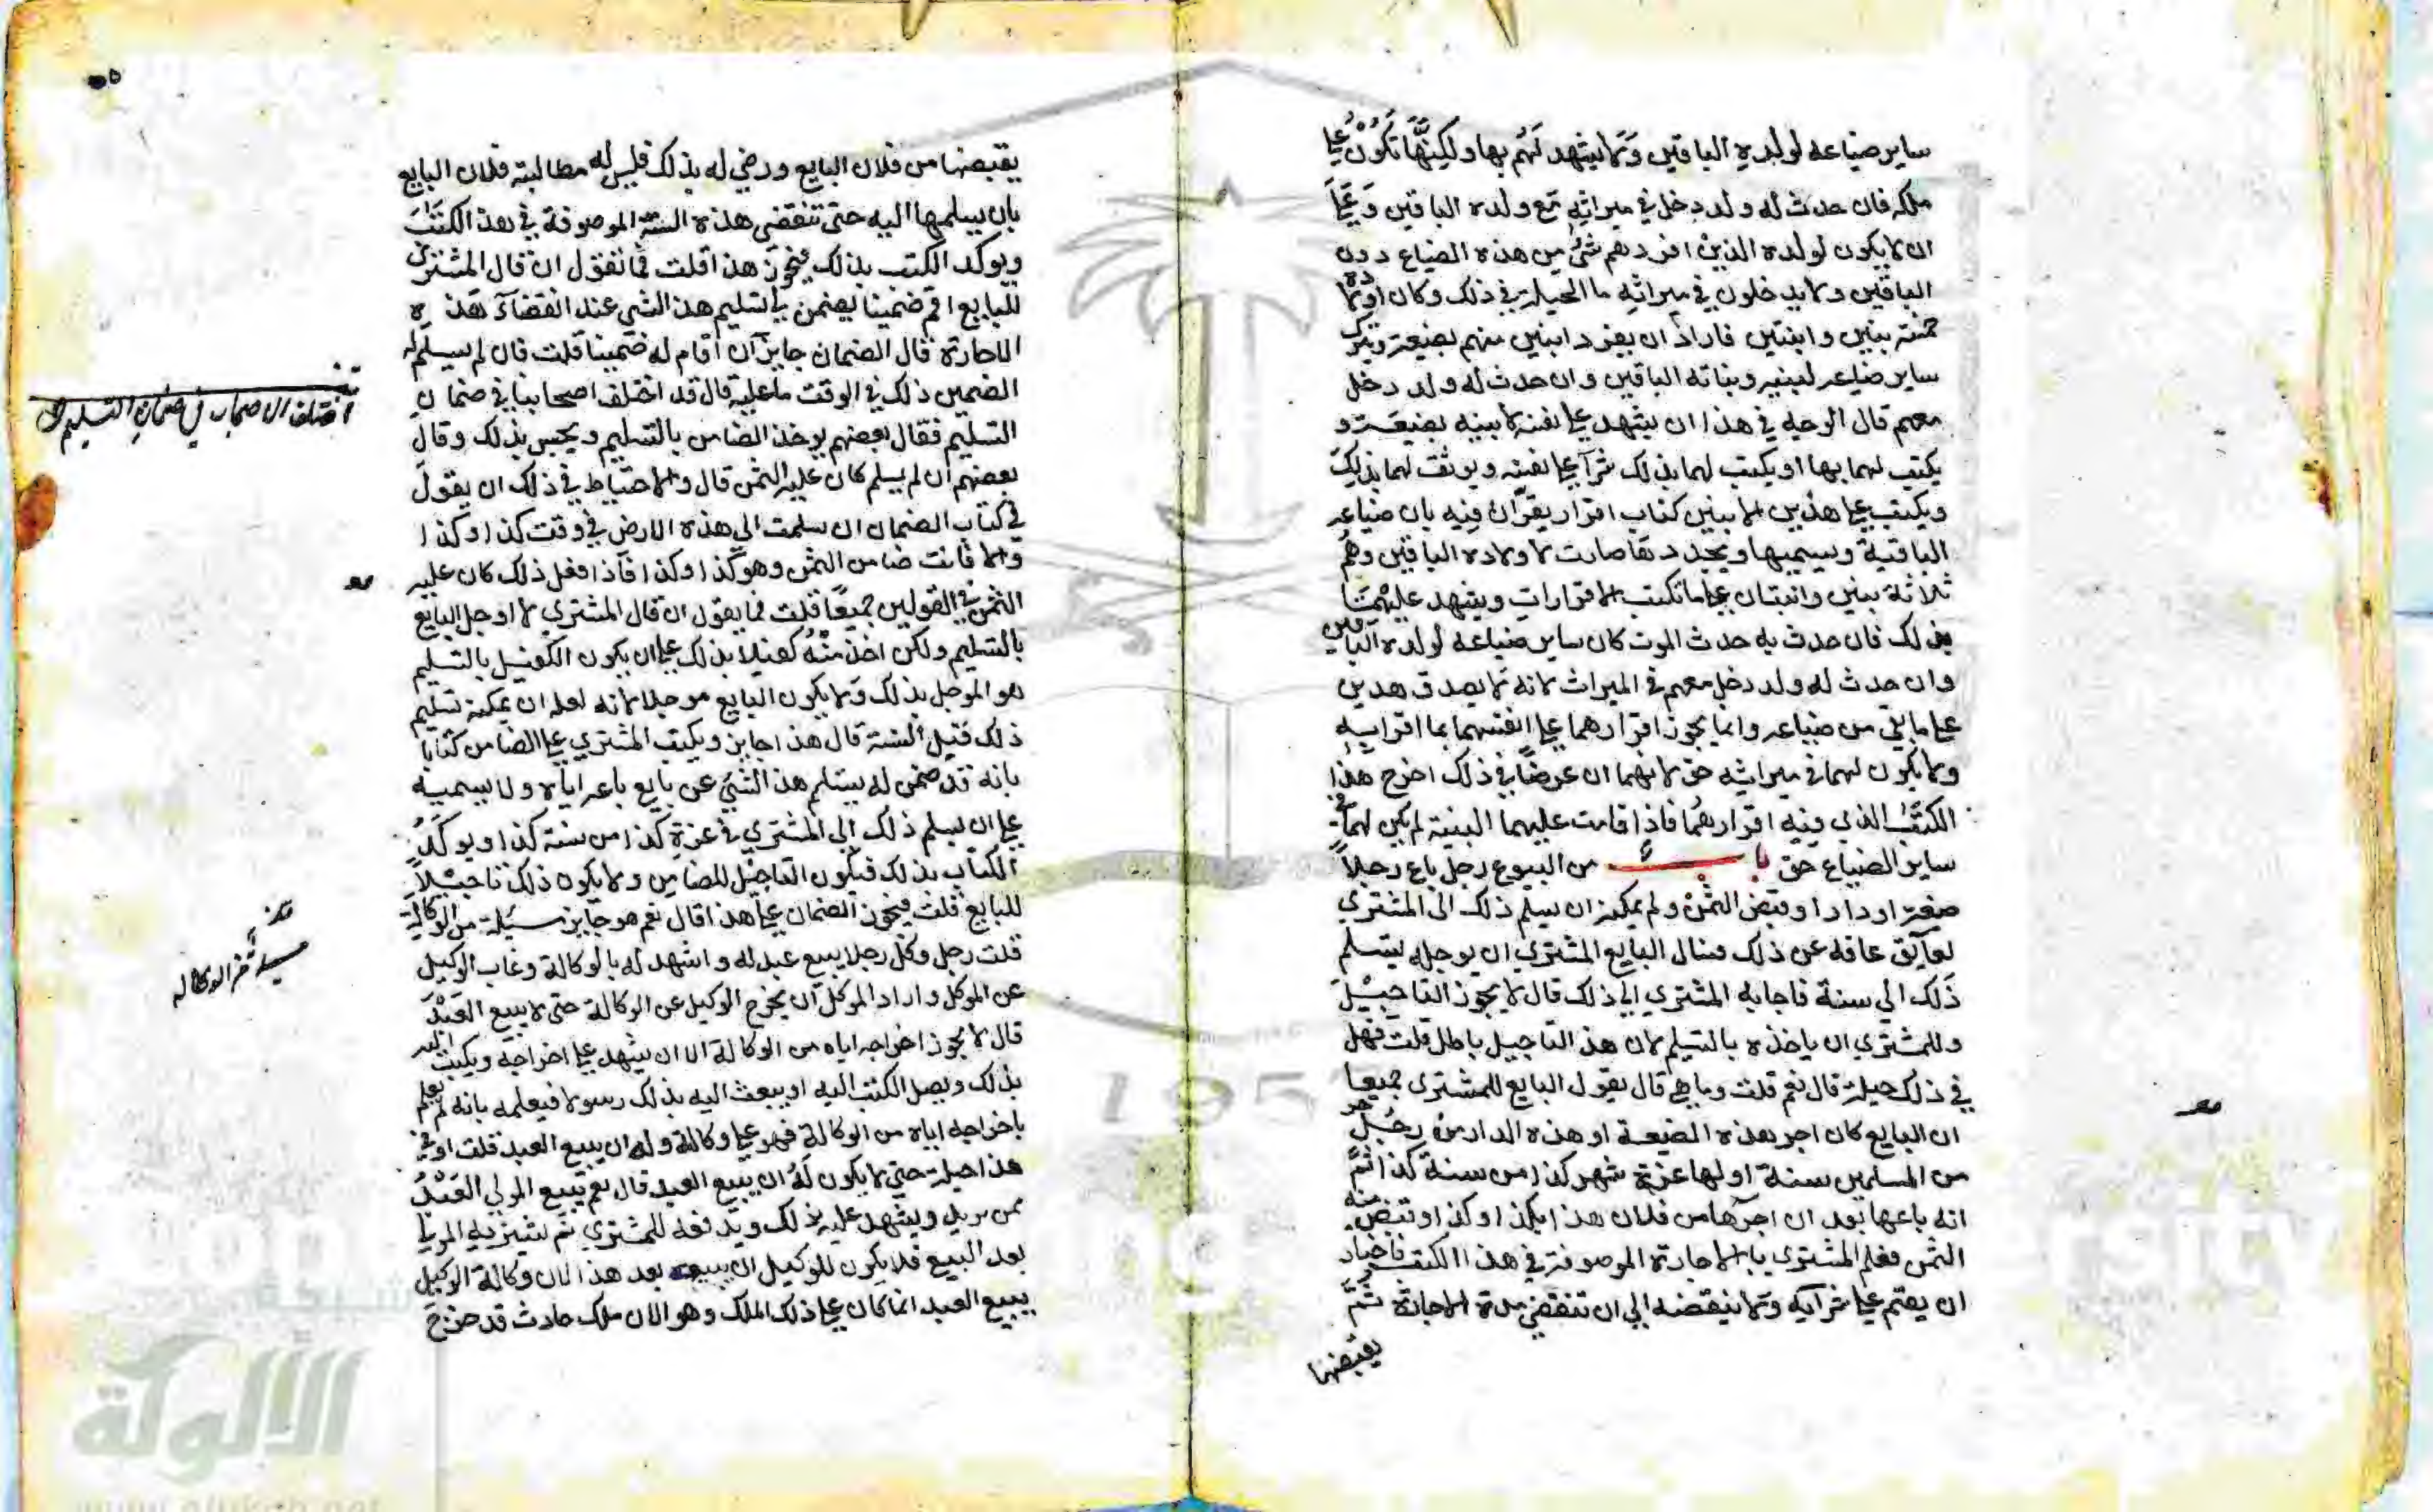 ساير ضياعه لولده الباقين ولا يشهد لهم بها ولكنها تكون علي
ملكه فان حدث له ولد دخل في ميراثه مع ولده الباقين وعلي
ان لا يكون لولده الذين افردهم شئ من هذه الضياع دون
الباقين ولا يدخلون في ميراثه ما الحيلة في ذلك وكان اولاده
خمسة بنين وابنتين فاراد ان يفرد ابنين منهم بضيعة ويترك
ساير ضياعه لبنيه وبناته الباقين وان حدث له ولد دخل
معهم قال الوجه في هذا ان يشهد علي نفسه لابنيه بضيعة و
يكتب لهما بها او يكتب لهما بذلك شرآ علي نفسه ويوثق لهما بذلك
ويكتب علي هذين الابنين كتاب اقرار يقران فيه بان ضياعه
الباقية ويسميها ويحددها صارت لاولاده الباقين وهم
ثلاثة بنين وابنتان علي ما تكتب الاقرارات ويشهد عليهما
بذلك فان حدث به حدث الموت كان ساير ضياعه لولده الباقين
وان حدث له ولد دخل معهم في الميراث لانه لا يصدق هذين
علي ما بقي من ضياعه وانما يجوز اقرارهما علي انفسهما بما اقرا به
ولا يكون لهما في ميراثه حق لانهما ان عرضا في ذلك اخرج هذا
الكتب الذي فيه اقرارهما فاذا قامت عليهما البينة لم يكن لهما في
ساير الضياع حق باب من البيوع رجل باع رجلا
ضيعة او دارا وقبض الثمن ولم يمكنه ان يسلم ذلك الى المشتري
لعايق عاقه عن ذلك فسال البايع المشتري ان يوجله بتسلم
ذلك الي سنة فاجابه المشتري الي ذلك قال لا يجوز التاجيل
وللمشتري ان ياخذه بالتسليم لان هذا التاجيل باطل قلت فهل
في ذلك حيلة قال نعم قلت وما هي قال يقول البايع للمشتري جميعا
ان البايع كان اجر هذه الضيعة او هذه الدار من رجل حر
من المسلمين سنة اولها غرة شهر كذا من سنة كذا ثم
انه باعها بعد ان اجرها من فلان هذا بكذا وكذا وقبض منه
الثمن فعلم المشتري بالاجارة الموصوفة في هذا الكتب فاختار
ان يقيم علي شرآيه ولا ينقضه الي ان تنقضي مدة الاجارة ثم
يقبضها
يقبضها من فلان البايع ورضي له بذلك فليس له مطالبة فلان البايع
بان يسلمها اليه حتى تنقضى هذه السنة الموصوفة في هذا الكتب
ويوكد الكتب بذلك فيجوز هذا قلت فما تقول ان قال المشتري
للبايع اقم ضمينا يضمن لي تسليم هذا الشي عند انقضآء هذه
الاجارة قال الضمان جايز ان اقام له ضمينا قلت فان لم يسلم له
الضمين ذلك في الوقت ما عليه قال قد اختلف اصحابنا في ضمان
التسليم فقال بعضهم يوخذ الضامن بالتسليم ويحبس بذلك وقال
بعضهم ان لم يسلم كان عليه الثمن قال والاحتياط في ذلك ان يقول
في كتاب الضمان ان سلمت الي هذه الارض في وقت كذا وكذا
والا فانت ضامن الثمن وهو كذا وكذا فاذا فعل ذلك كان عليه
الثمن في القولين جميعا قلت فما يقول ان قال المشتري لا اوجل البايع
بالتسليم ولكن اخذ منه كفيلا بذلك علي ان يكون الكفيل بالتسليم
هو الموجل بذلك ولا يكون البايع موجلا لانه لعله ان يمكنه تسليم
ذلك قبل السنة قال هذا جايز ويكتب المشتري علي الضامن كتابا
بانه قد ضمن له بتسلم هذا الشئ عن بايع باعه اياه ولا يسميه
علي ان يسلم ذلك الي المشتري في غرة كذا من سنة كذا ويوكد
الكتاب بذلك فيكون التاجيل للضامن ولا يكون ذلك تاجيلا
للبايع قلت فيجوز الضمان علي هذا قال نعم هو جايز مسئلة من الوكالة
قلت رجل وكل رجلا يبيع عبد له واشهد له بالوكالة وغاب الوكيل
عن الموكل واراد الموكل ان يخرج الوكيل عن الوكالة حتى لا يبيع العبد
قال لا يجوز اخراجه اياه من الوكالة الا ان يشهد علي اخراجه ويكتب اليه
بذلك ويصل الكتب اليه او يبعث اليه بذلك رسولا فيعلمه بانه لم يعلم
باخراجه اياه من الوكالة فهو علي وكالة وله ان يبيع العبد قلت او في
هذا حيلة حتي لا يكون له ان يبيع العبد قال نعم يبيع المولى العبد
ممن يريد ويشهد عليه بذلك ويدفعه للمشتري ثم يشتريه المولي
بعد البيع فلا يكون للوكيل ان يبيعه بعد هذا لان وكالة الوكيل
يبيع العبد انما كان علي ذلك الملك وهو الان ملك حادث قد خرج
اختلف الاصحاب في ضمان التسليم
مسئلة من الوكاله
شبكة
الألوكة
www.alukah.net
195